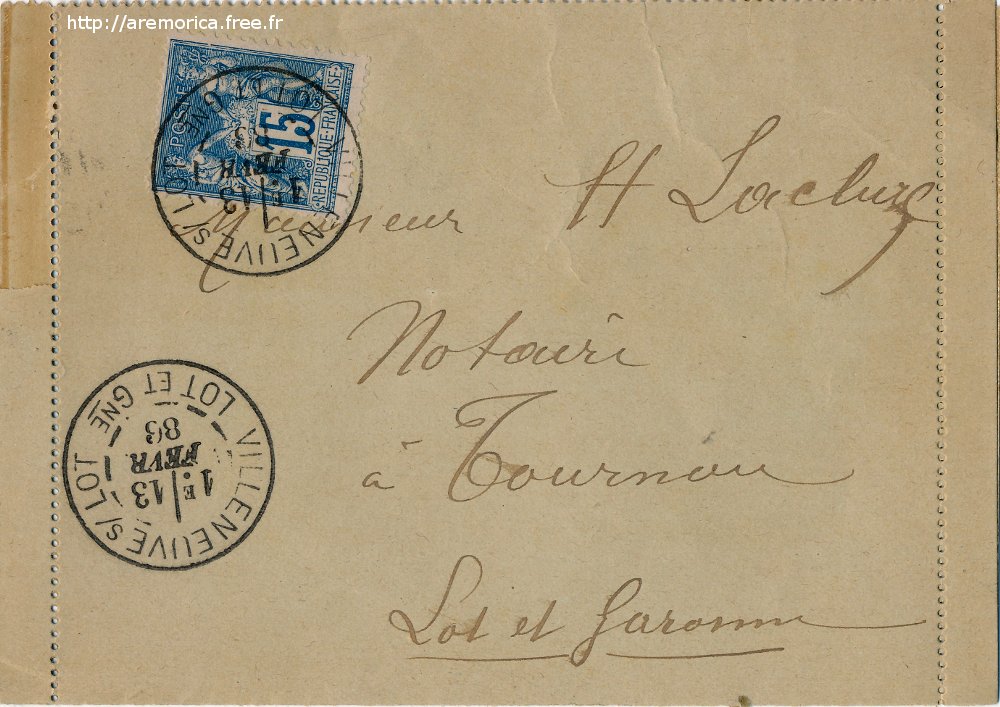 http://aremorica.free.fr
POSTES
15
REPUBLIQUE FRANÇAISE
VILLENEUVE S/ LOT
1E 13
FEVR
Monsieur H
Notaire
à Tournon
Lot et Garonne
VILLENEUVE S/ LOT
LOT ET GNE
1E 13
FEVR
86